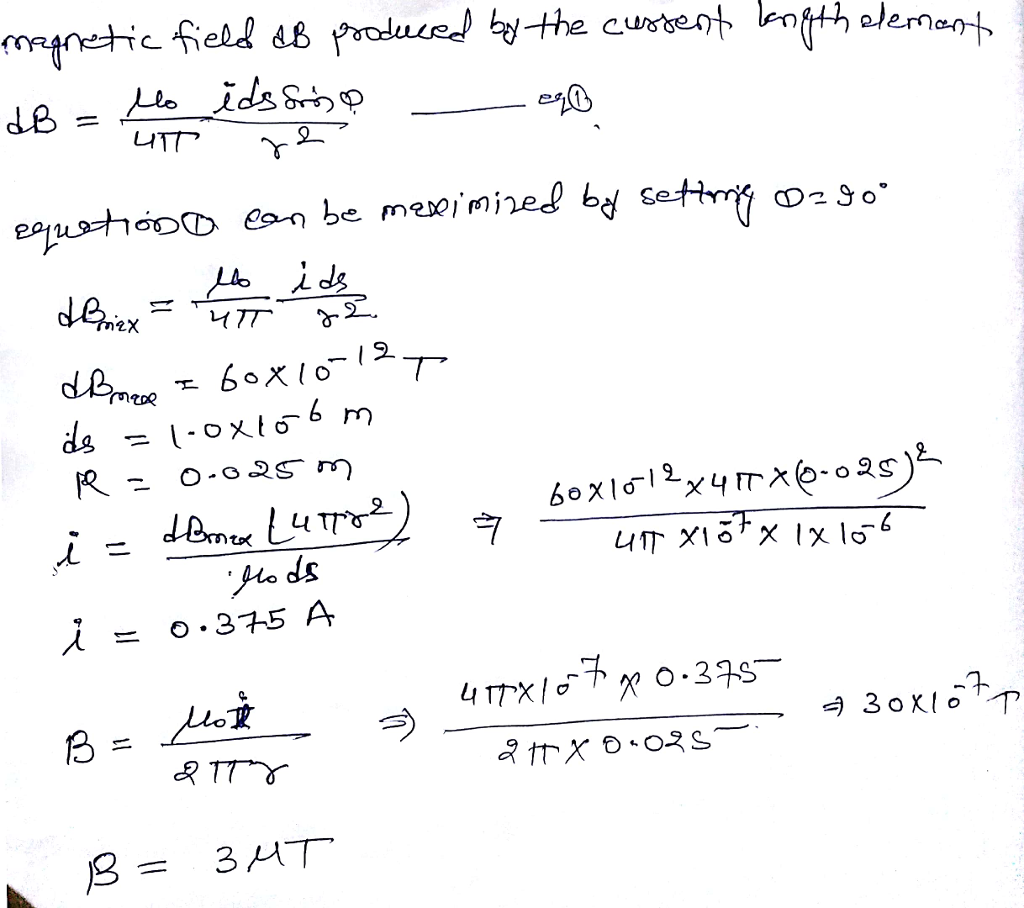 magnetic field dB produced by the current length element
dB = μ₀/4π ids Sinφ/r² —— eq①
equation① can be maximized by setting Φ=90°
dBmax = μ₀/4π ids/r²
dBmax = 60×10⁻¹² T
ds = 1.0×10⁻⁶ m
R = 0.025 m
i = dBmax (4πr²)/μ₀ds ⇒ 60×10⁻¹²×4π×(0.025)²/4π×10⁻⁷×1×10⁻⁶
i = 0.375 A
B = μ₀i/2πr ⇒ 4π×10⁻⁷×0.375/2π×0.025 ⇒ 30×10⁻⁷ T
B = 3 μT